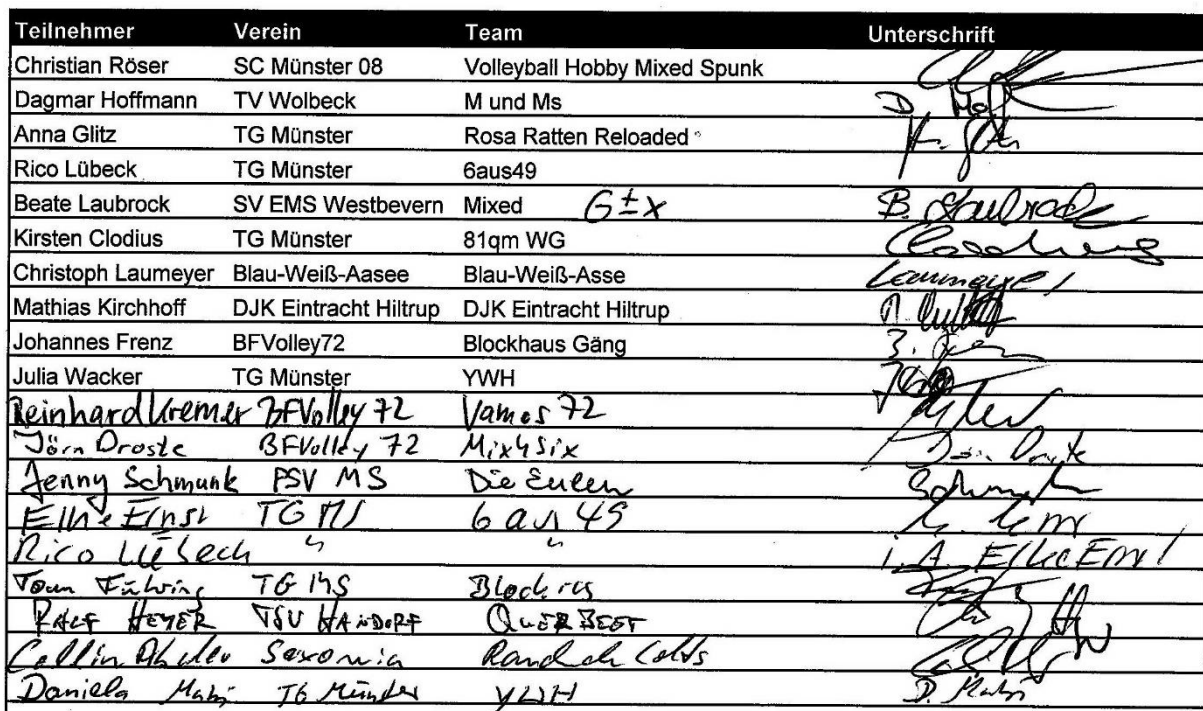 Teilnehmer Verein Team Unterschrift
Christian Röser SC Münster 08 Volleyball Hobby Mixed Spunk
Dagmar Hoffmann TV Wolbeck M und Ms D. Hof
Anna Glitz TG Münster Rosa Ratten Reloaded
Rico Lübeck TG Münster 6aus49
Beate Laubrock SV EMS Westbevern Mixed G±x B. Laubrock
Kirsten Clodius TG Münster 81qm WG
Christoph Laumeyer Blau-Weiß-Aasee Blau-Weiß-Asse Laumeyer
Mathias Kirchhoff DJK Eintracht Hiltrup DJK Eintracht Hiltrup
Johannes Frenz BFVolley72 Blockhaus Gäng
Julia Wacker TG Münster YWH
Reinhard Kremer BFVolley 72 Vamos 72
Jörn Droste BFVolley 72 Mix4Six Jörn Droste
Jenny Schmunk PSV MS Die Eulen
Elke Ernst TG MS 6 aus 49
Rico Lübeck " " i.A. Elke Ernst
TG MS
Ralf Heyer TSV Handorf Querbeet
Saxonia
Daniela TG Münster YWH D.